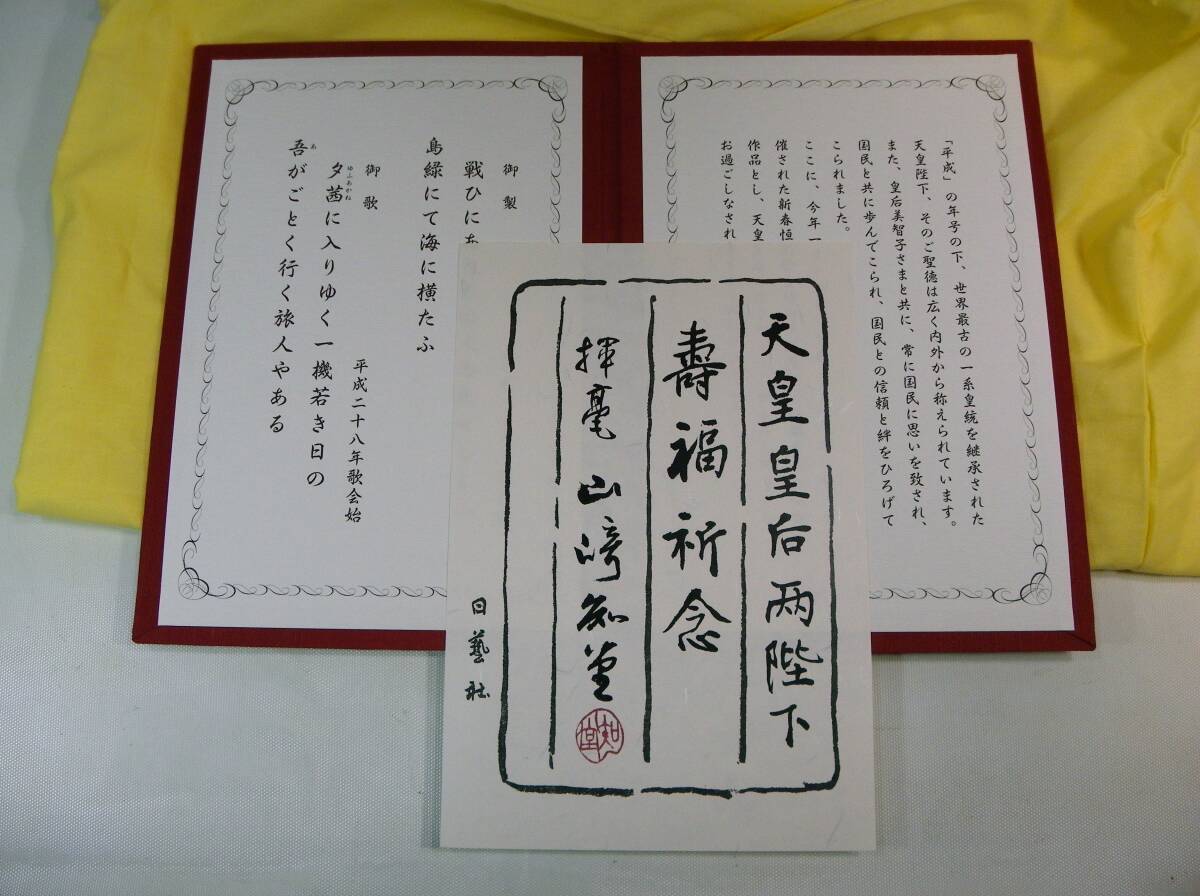 「平成」の年号の下、世界最古の一系皇統を継承された
天皇陛下、そのご聖徳は広く内外から称えられています。
また、皇后美智子さまと共に、常に国民に思いを致され、
国民と共に歩んでこられ、国民との信頼と絆をひろげて
こられました。
ここに、今年一
催された新春恒
作品とし、天皇
お過ごしなされ
御製
戦ひにあ
島緑にて海に横たふ
御歌
平成二十八年歌会始
夕茜に入りゆく一機若き日の
ゆふあかね
吾がごとく行く旅人やある
あ
天皇皇后両陛下
壽福祈念
揮毫 山﨑知堂
知堂
日藝社